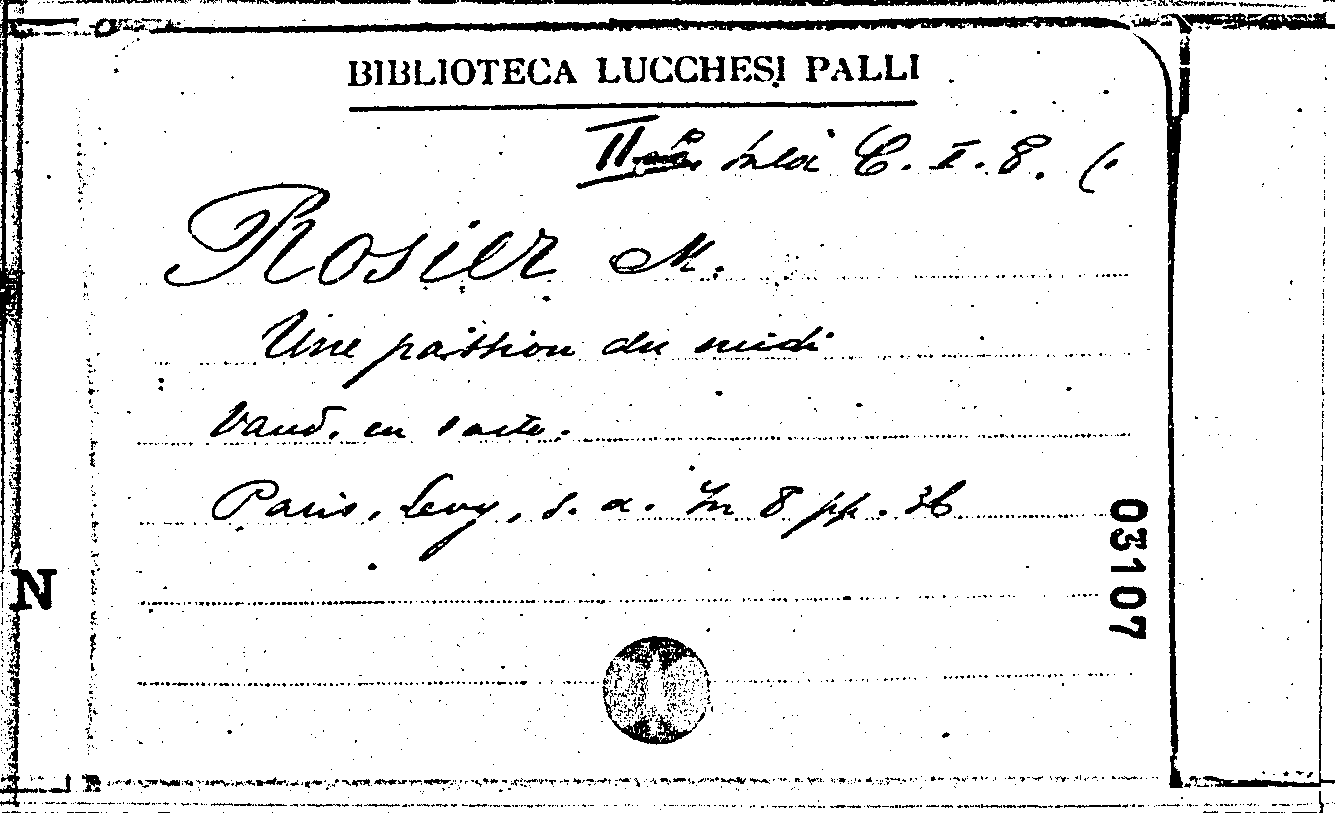 BIBLIOTECA LUCCHESI PALLI
II sala C. I. 8. (.
Rosier M.
Une passion du midi
Vaud. en 1 acte.
Paris, Levy, s. a. In 8 pp. 36
03107
N